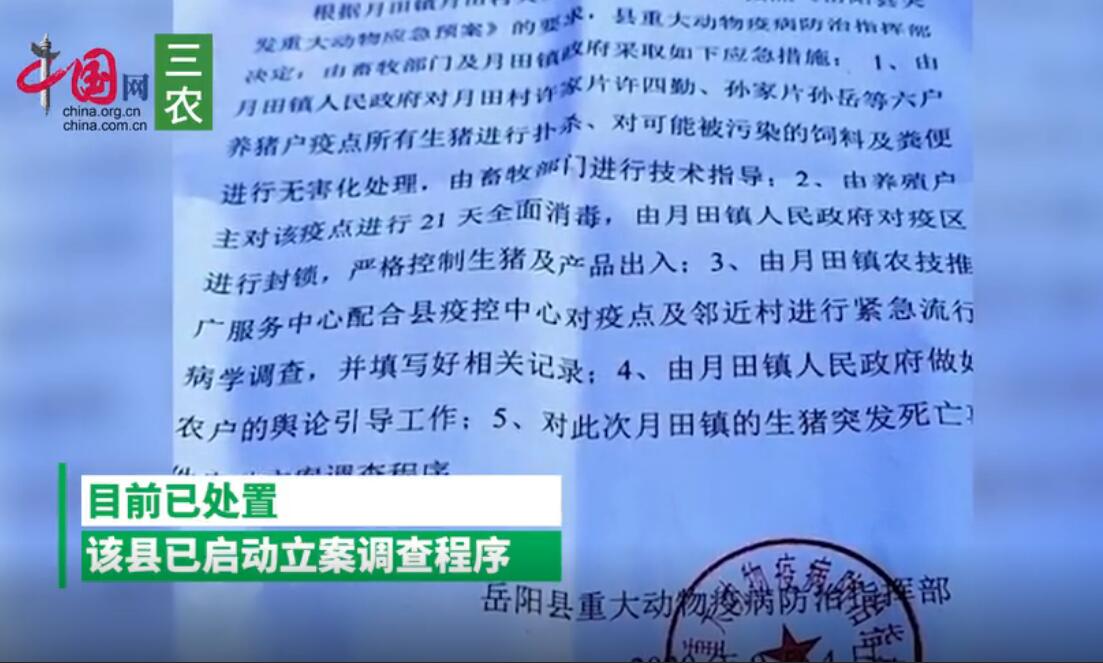 中国网
china.org.cn
china.com.cn
三农
根据月田镇月田村
发重大动物应急预案》的要求，县重大动物疫病防治指挥部
决定，由畜牧部门及月田镇政府采取如下应急措施： 1、由
月田镇人民政府对月田村许家片许四勤、孙家片孙岳等六户
养猪户疫点所有生猪进行扑杀、对可能被污染的饲料及粪便
进行无害化处理，由畜牧部门进行技术指导；2、由养殖户
主对该疫点进行 21 天全面消毒，由月田镇人民政府对疫区
进行封锁，严格控制生猪及产品出入；3、由月田镇农技推
广服务中心配合县疫控中心对疫点及邻近村进行紧急流行
病学调查，并填写好相关记录；4、由月田镇人民政府做好
农户的舆论引导工作；5、对此次月田镇的生猪突发死亡事
立案调查程序
目前已处置
该县已启动立案调查程序
岳阳县重大动物疫病防治指挥部